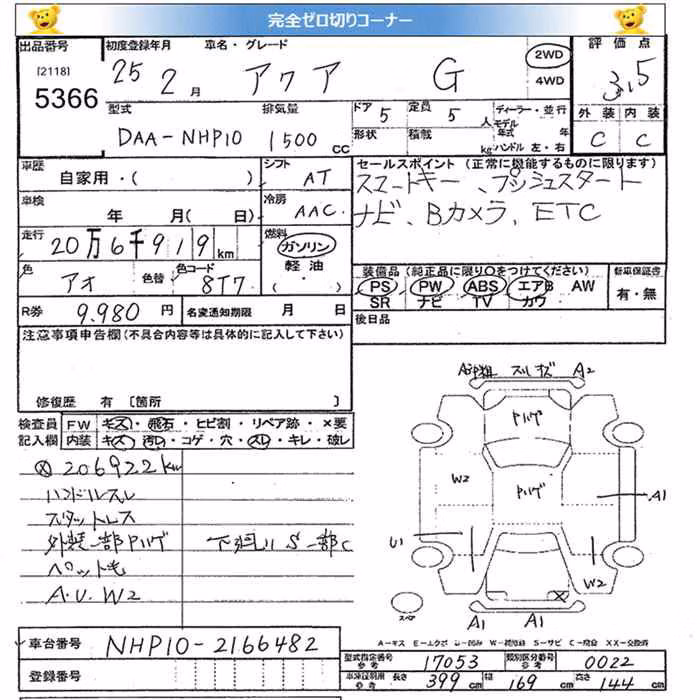 完全ゼロ切りコーナー
出品番号
[2118]
5366
初度登録年月 車名・グレード
25 2月 アクア G
2WD
4WD
評価点
3.5
外装 内装
C C
型式 排気量
DAA-NHP10 1500 cc
ドア 5 定員 5 人
形状 積載 kg
ディーラー・並行
モデル年式 年
ハンドル 左・右
車歴
自家用・( )
シフト
AT
車検
年 月( 日)
冷房
AAC
走行
20万6千919km
燃料
ガソリン
軽油
( ・ )
色
アオ
色替
色コード
8T7
R券 9.980 円
名変通知期限 月 日
セールスポイント (正常に機能するものに限ります)
スマートキー、プッシュスタート
ナビ、Bカメラ、ETC
装備品(純正品に限り○をつけてください)
PS PW ABS エアB AW
SR ナビ TV カワ
新車保証書
有・無
後日品
注意事項申告欄(不具合内容等は具体的に記入して下さい)
修復歴 有 [箇所 ]
検査員記入欄
FW キズ・飛石・ヒビ割・リペア跡・×要
内装 キズ・汚れ・コゲ・穴・スレ・キレ・破レ
206922km
ハンドルスレ
スタットレス
外装一部ハゲ 下廻りS一部C
ペット毛
A.U.W2
スレ キズ A2
ハゲ
W2
ハゲ
A1
U1
W2
スペア
A1 A1
A-キズ E-エクボ U-凹み W-補修跡 S-サビ C-腐食 XX-交換済
車台番号 NHP10-2166482
登録番号
型式指定番号 参考 17053
類別区分番号 参考 0022
車庫証明用 参考 長さ 399cm 幅 169cm 高さ 144cm